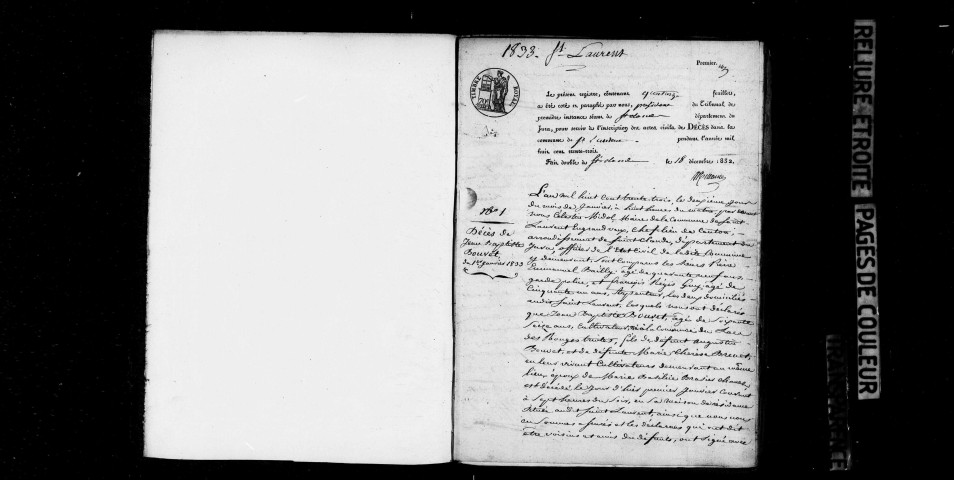 1833. St Laurent
Premier.
TIMBRE ROYAL
Le présent registre, contenant feuillets,
a été coté et paraphé par nous, président du Tribunal de
première instance séant à St Claude département du
Jura, pour servir de l'inscription des actes civils de DÉCÈS dans la
commune de St Laurent pendant l'année mil
huit cent trente-trois.
Fait double à St Claude le 18 décembre 1832.
No 1
Décès de
Jean Baptiste
Bouvet,
du 1er janvier 1833
L'an mil huit cent trente trois, le deuxième jour
du mois de Janvier, à huit heures du matin, par devant
nous Célestin Midol, Maire de la Commune de Saint
Laurent Chef lieu de Canton,
arrondissement de Saint Claude, département du
Jura, officier de l'état Civil de ladite Commune
y demeurant, sont comparus les sieurs Pierre
Emmanuel Bailly, âgé de quarante neuf ans,
garde et François Régis Guy, âgé de
Cinquante un ans, les deux domiciliés
audit Saint Laurent, lesquels nous ont déclaré
que Jean Baptiste Bouvet, âgé de soixante
seize ans, Cultivateur, né à la Commune du Lac
des Rouges truites, fils de défunt Augustin
Bouvet, et de défunte Marie Thérèse
en leur vivant Cultivateurs demeurant au même
lieu, époux de Marie
est décédé le jour d'hier premier Janvier Courant
à sept heures du soir, en sa maison de résidence
située audit Saint Laurent, ainsi que nous nous
en sommes assurés et les déclarans qui ont dit
être voisins et amis du défunt, ont signé avec
RELIURE ETROITE
PAGES DE COULEUR
TRANSPARENCE